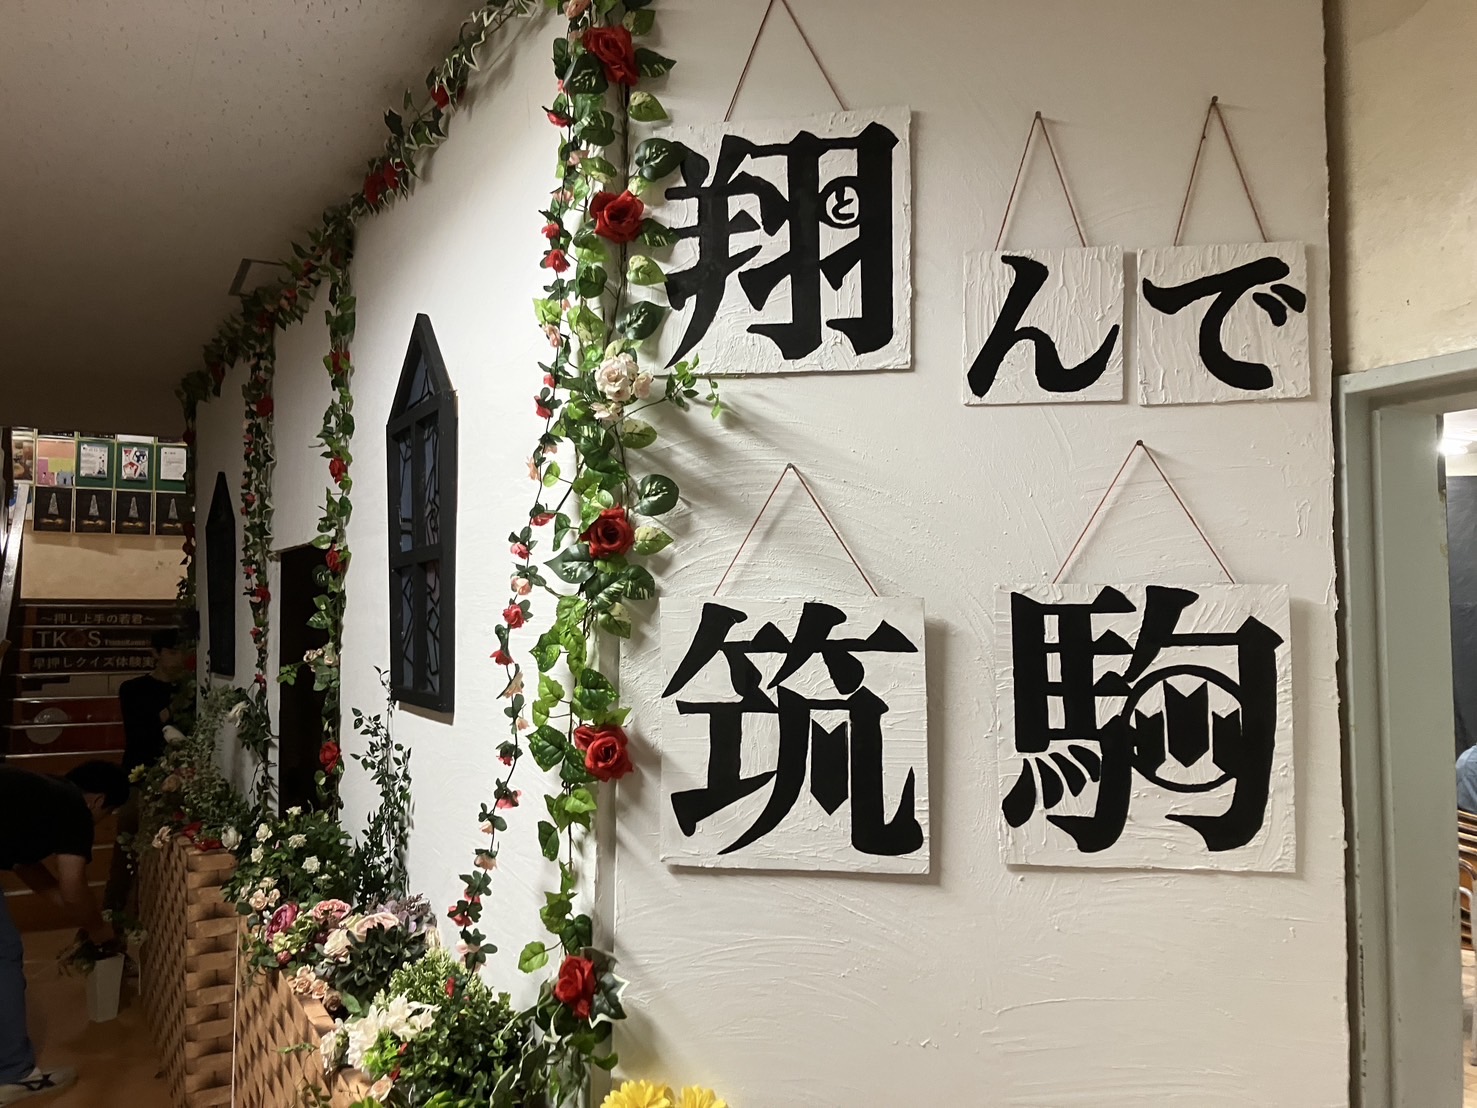 翔んで
と
筑駒
〜押し上手の若君〜
TKQS
早押しクイズ体験実